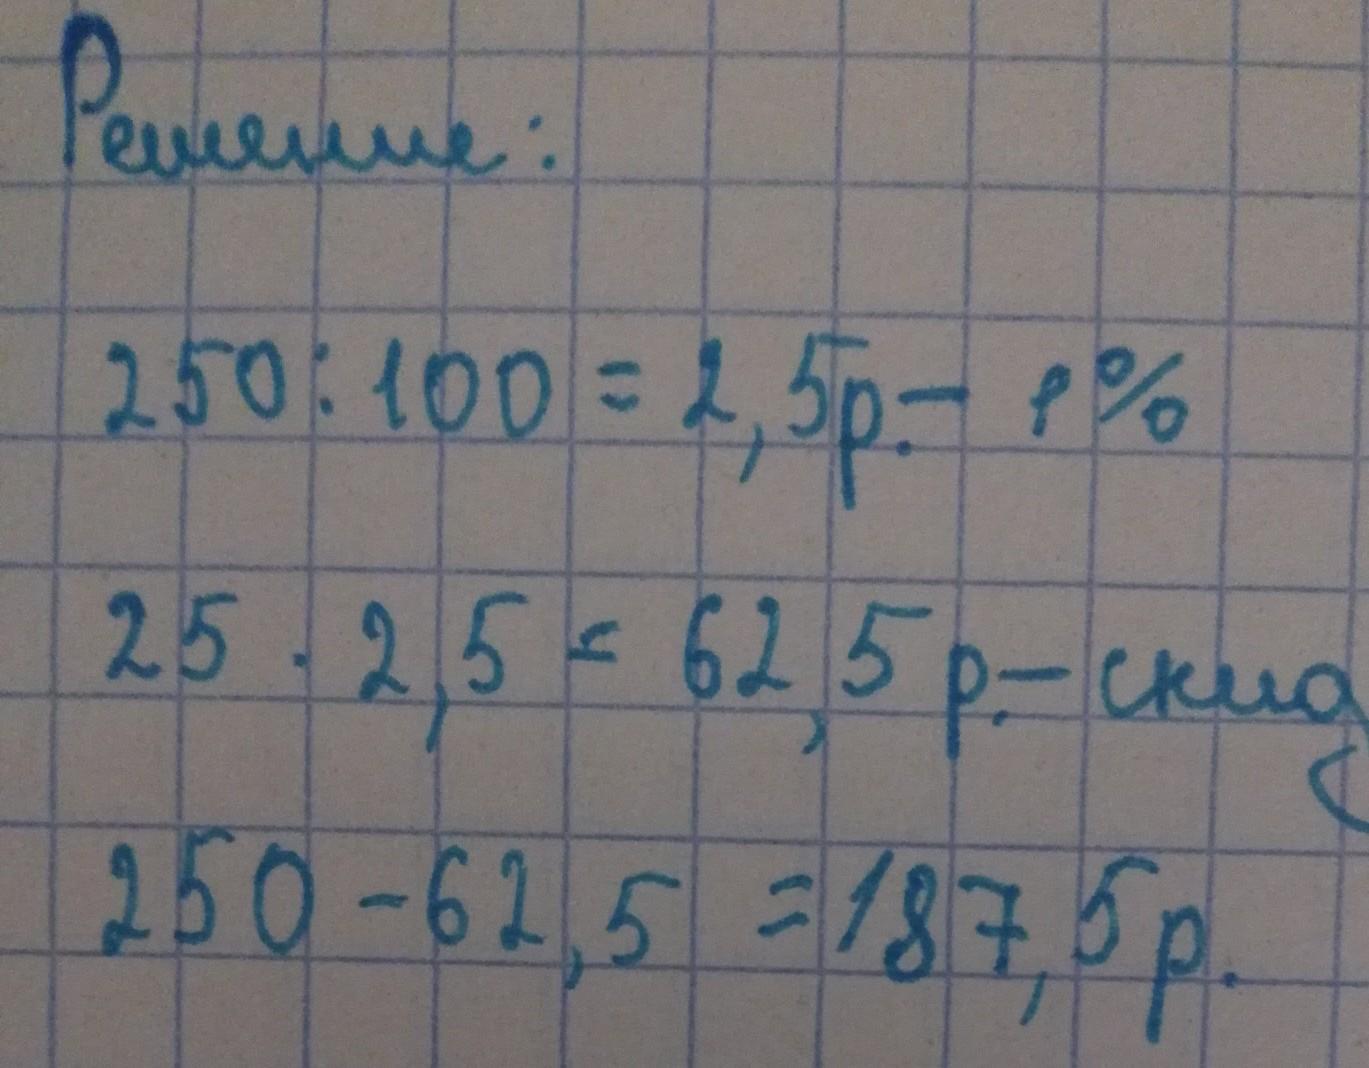 Решение:
250:100 = 2,5р. - 1%
25 · 2,5 = 62,5 р. - скид
250 - 62,5 = 187,5 р.